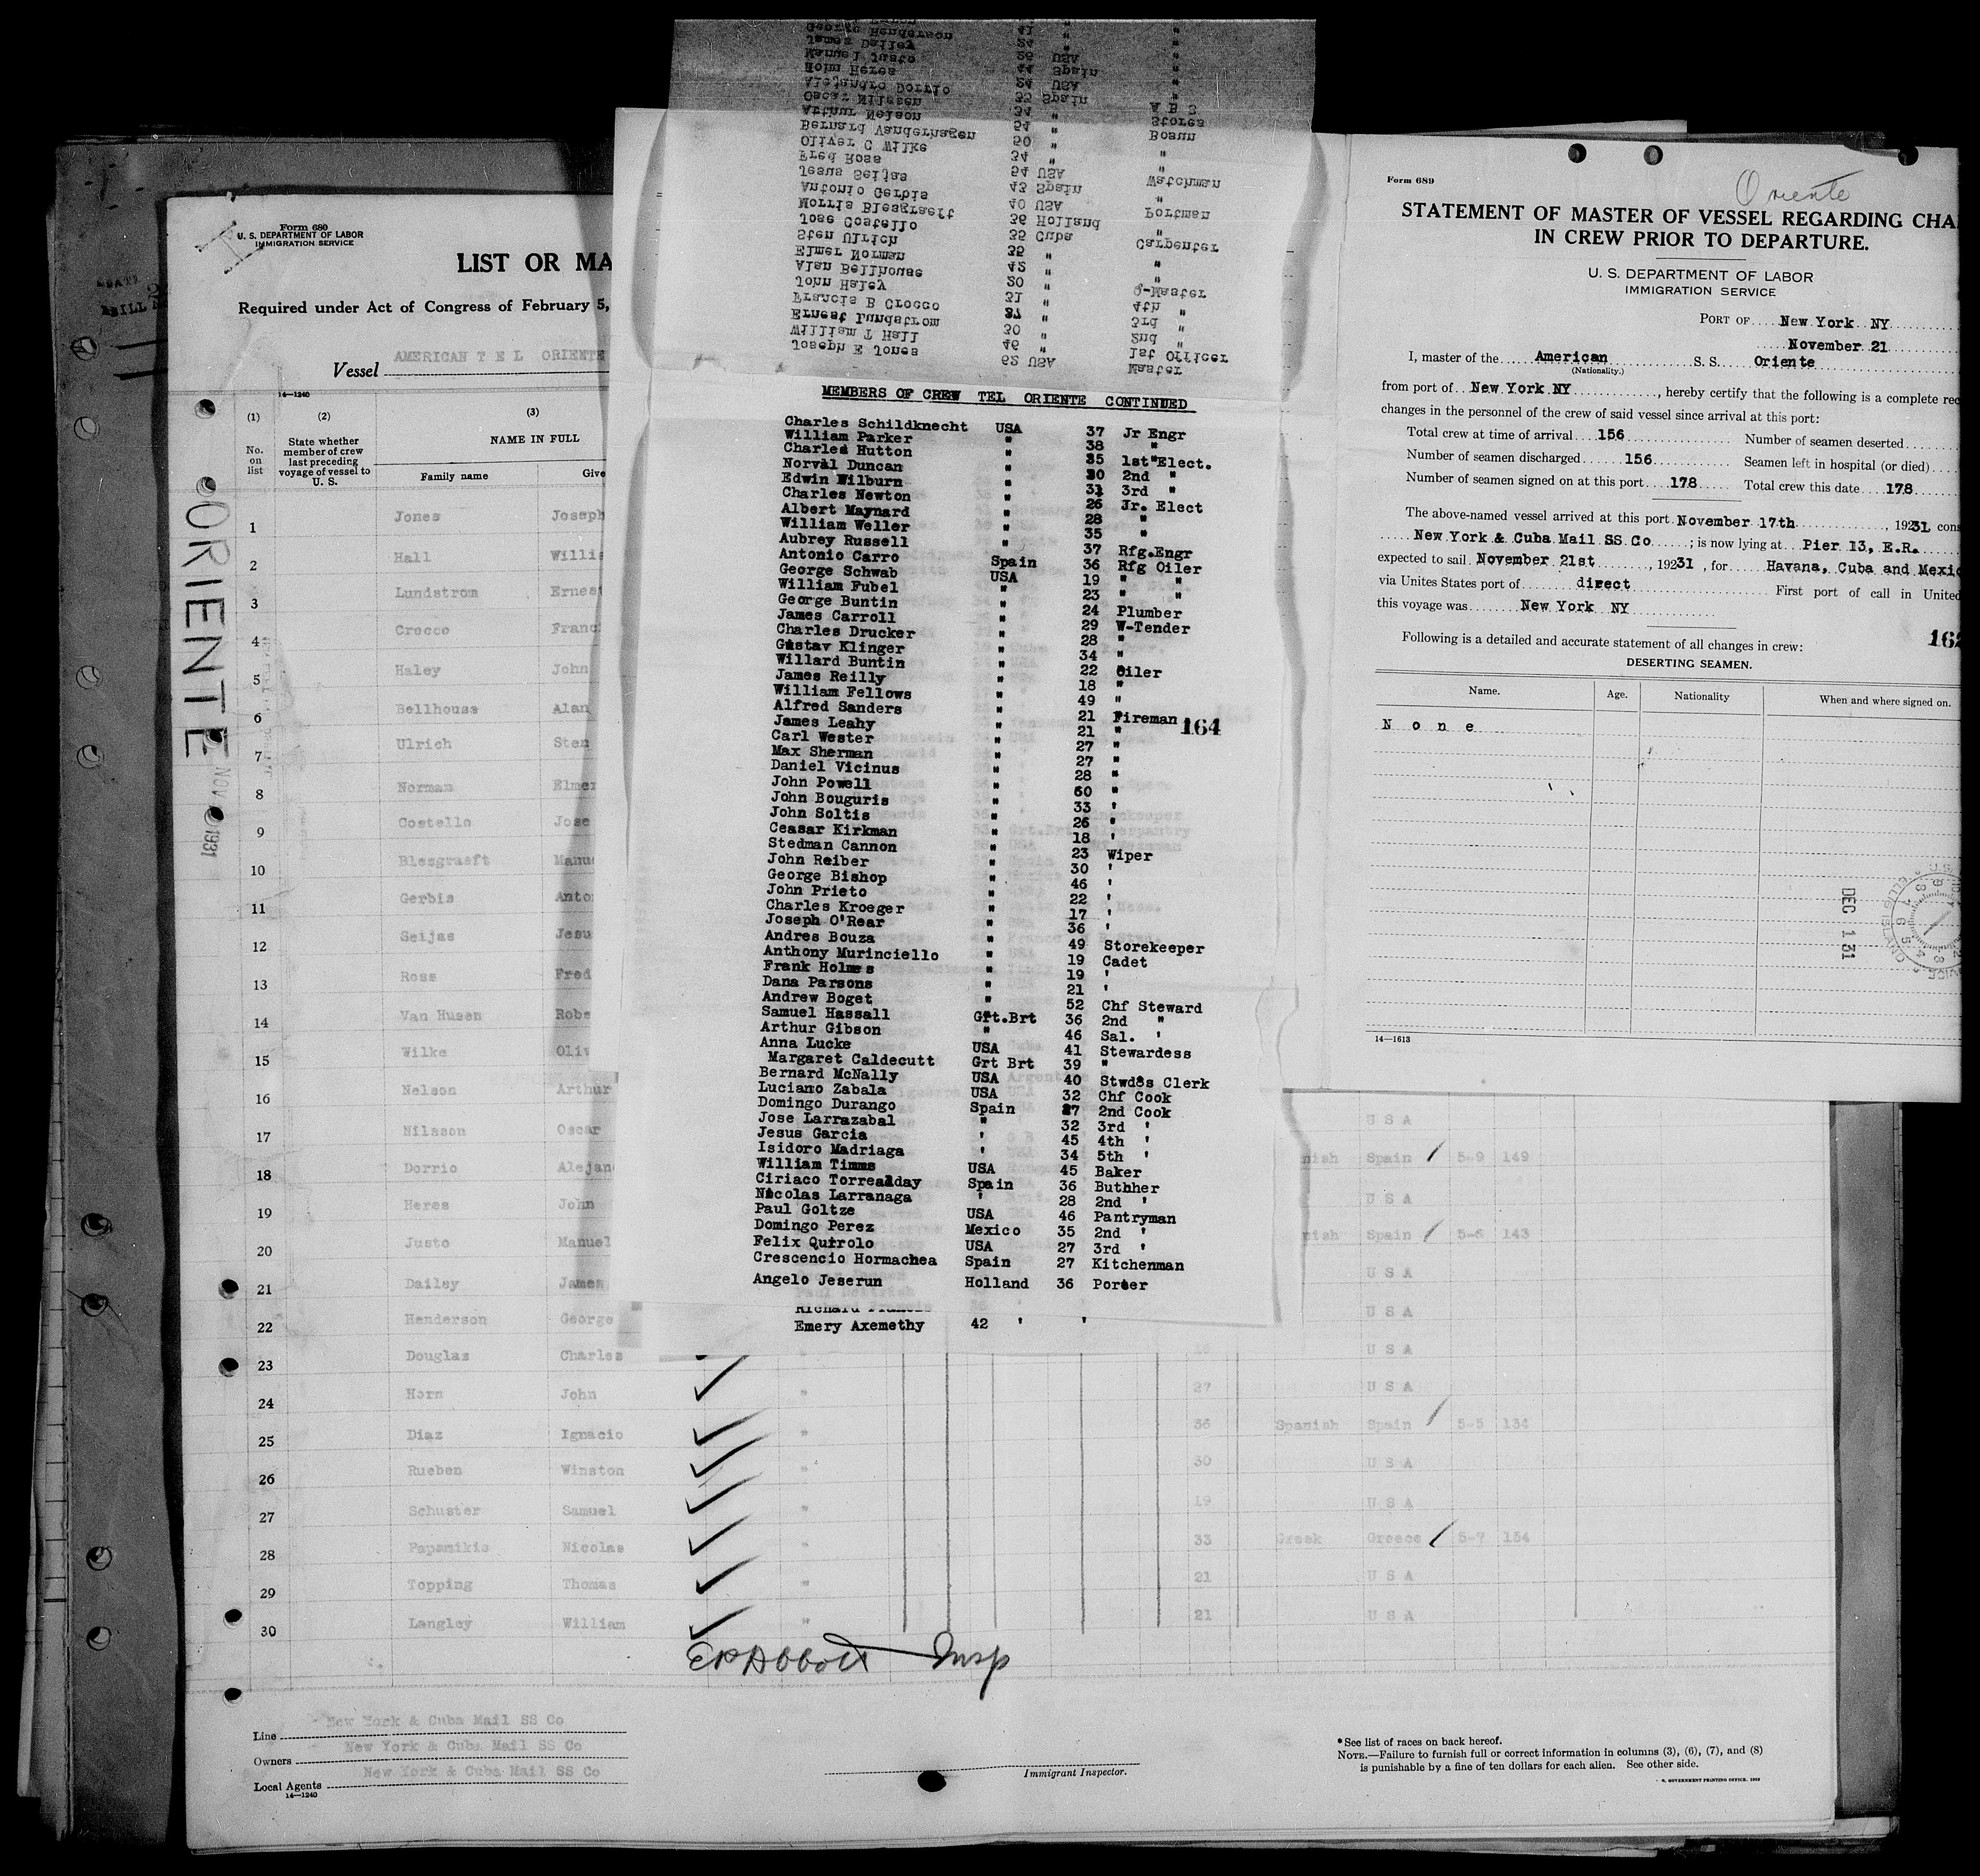 Form 680
U. S. DEPARTMENT OF LABOR
IMMIGRATION SERVICE
LIST OR MA
Required under Act of Congress of February 5,
Vessel AMERICAN T E L ORIENTE
14—1240
(1) (2) (3)
No. on list
State whether member of crew last preceding voyage of vessel to U. S.
NAME IN FULL
Family name Give
ORIENTE NOV 1931
1 Jones Joseph
2 Hall Willia
3 Lundstrom Ernest
4 Crocco Franc
5 Haley John
6 Bellhouse Alan
7 Ulrich Sten
8 Norman Elmer
9 Costello Jose
10 Blesgraeft Manu
11 Gerbis Anto
12 Seijas Jesu
13 Ross Fred
14 Van Husen Robe
15 Wilke Oliv
16 Nelson Arthur
17 Nilsson Oscar U S A
18 Dorrio Alejan nish Spain 5-9 149
19 Heres John U S A
20 Justo Manuel nish Spain 5-6 143
21 Dailey James U S A
22 Henderson George U S A
23 Douglas Charles U S A
24 Horn John " 27 U S A
25 Diaz Ignacio " 36 Spanish Spain 5-5 134
26 Rueben Winston " 30 U S A
27 Schuster Samuel " 19 U S A
28 Papamikis Nicolas " 33 Greek Greece 5-7 154
29 Topping Thomas " 21 U S A
30 Langley William " 21 U S A
E P Abbott Insp
Line New York & Cuba Mail SS Co
Owners New York & Cuba Mail SS Co
Local Agents New York & Cuba Mail SS Co
14—1240
Immigrant Inspector.
*See list of races on back hereof.
NOTE.—Failure to furnish full or correct information in columns (3), (6), (7), and (8)
is punishable by a fine of ten dollars for each alien. See other side.
GOVERNMENT PRINTING OFFICE
Master
Joseph E Jones 62 USA 1st Officer
William T Hall 46 " 2nd "
Ernest Lundstrom 30 " 3rd "
Francis B Crocco 37 " 4th "
John Haley 31 " Q-Master
Alan Bellhouse 20 " "
Elmer Norman 42 " "
Sten Ulrich 35 " Carpenter
Jose Costello 35 Cuba "
Morris Blesgraeft 36 Holland Portman
Antonio Gerbis 40 USA "
Jesus Seijas 43 Spain Watchman
Fred Ross 54 USA "
Oliver C Wilke 34 " "
Bernard Vanderhagen 50 " Bosun
Arthur Nelson 54 " Stores
Oscar Nilssen 34 " A B S
Alejandro Dorrio 33 Spain "
Hoim Heres 24 USA "
Manuel Justo 44 Spain "
James Dailey 26 USA "
George Henderson 24 " "
41 " "
MEMBERS OF CREW TEL ORIENTE CONTINUED
Charles Schildknecht USA 37 Jr Engr
William Parker " 38 "
Charles Hutton " 35 1st Elect.
Norval Duncan " 30 2nd "
Edwin Wilburn " 31 3rd "
Charles Newton " 26 Jr. Elect
Albert Maynard " 28 "
William Weller " 35 "
Aubrey Russell " 37 Rfg.Engr
Antonio Carro Spain 36 Rfg Oiler
George Schwab USA 19 " "
William Fubel " 23 " "
George Buntin " 24 Plumber
James Carroll " 29 W-Tender
Charles Drucker " 28 "
Gustav Klinger " 34 "
Willard Buntin " 22 Oiler
James Reilly " 18 "
William Fellows " 49 "
Alfred Sanders " 21 Fireman 164
James Leahy " 21 "
Carl Wester " 27 "
Max Sherman " 27 "
Daniel Vicinus " 28 "
John Powell " 60 "
John Bouguris " 33 '
John Soltis " 26 '
Ceasar Kirkman " 18 '
Stedman Cannon " 23 Wiper
John Reiber " 30 '
George Bishop " 46 '
John Prieto " 22 '
Charles Kroeger " 17 '
Joseph O'Rear " 36 '
Andres Bouza " 49 Storekeeper
Anthony Murinciello " 19 Cadet
Frank Holmes " 19 '
Dana Parsons " 21 '
Andrew Boget " 52 Chf Steward
Samuel Hassall Grt.Brt 36 2nd "
Arthur Gibson " 46 Sal. '
Anna Lucke USA 41 Stewardess
Margaret Caldecutt Grt Brt 39 "
Bernard McNally USA 40 Stwdss Clerk
Luciano Zabala USA 32 Chf Cook
Domingo Durango Spain 27 2nd Cook
Jose Larrazabal " 32 3rd '
Jesus Garcia ' 45 4th '
Isidoro Madriaga ' 34 5th '
William Timms USA 45 Baker
Ciriaco Torrealday Spain 36 Buthher
Nicolas Larranaga ' 28 2nd '
Paul Goltze USA 46 Pantryman
Domingo Perez Mexico 35 2nd '
Felix Quirolo USA 27 3rd '
Crescencio Hormachea Spain 27 Kitchenman
Angelo Jeserun Holland 36 Porter
Emery Axemethy 42 ' '
Form 689
Oriente
STATEMENT OF MASTER OF VESSEL REGARDING CHA
IN CREW PRIOR TO DEPARTURE.
U. S. DEPARTMENT OF LABOR
IMMIGRATION SERVICE
PORT OF New York NY
November 21
I, master of the American S. S. Oriente
(Nationality.)
from port of New York NY, hereby certify that the following is a complete rec
changes in the personnel of the crew of said vessel since arrival at this port:
Total crew at time of arrival 156 Number of seamen deserted
Number of seamen discharged 156 Seamen left in hospital (or died)
Number of seamen signed on at this port 178 Total crew this date 178
The above-named vessel arrived at this port November 17th, 1931 cons
New York & Cuba Mail SS Co; is now lying at Pier 13, E.R.
expected to sail November 21st, 19231, for Havana, Cuba and Mexic
via Unites States port of direct First port of call in United
this voyage was New York NY
Following is a detailed and accurate statement of all changes in crew: 162
DESERTING SEAMEN.
Name. Age. Nationality When and where signed on.
N o n e
DEC 1 31
14—1613